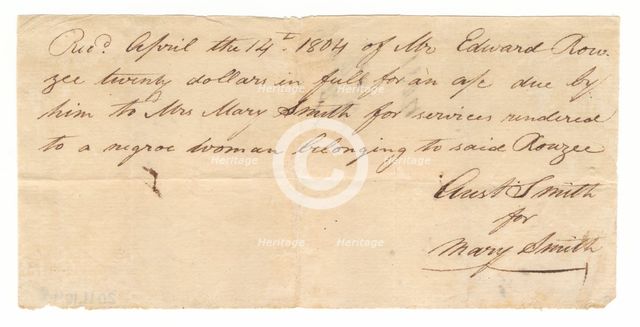 Rec.d April the 14t. 1804 of Mr Edward Row-
zee twenty dollars in full for an a/c due by
him to Mrs Mary Smith for services rendered
to a negroe woman belonging to said Rowzee
Aust Smith
for
Mary Smith